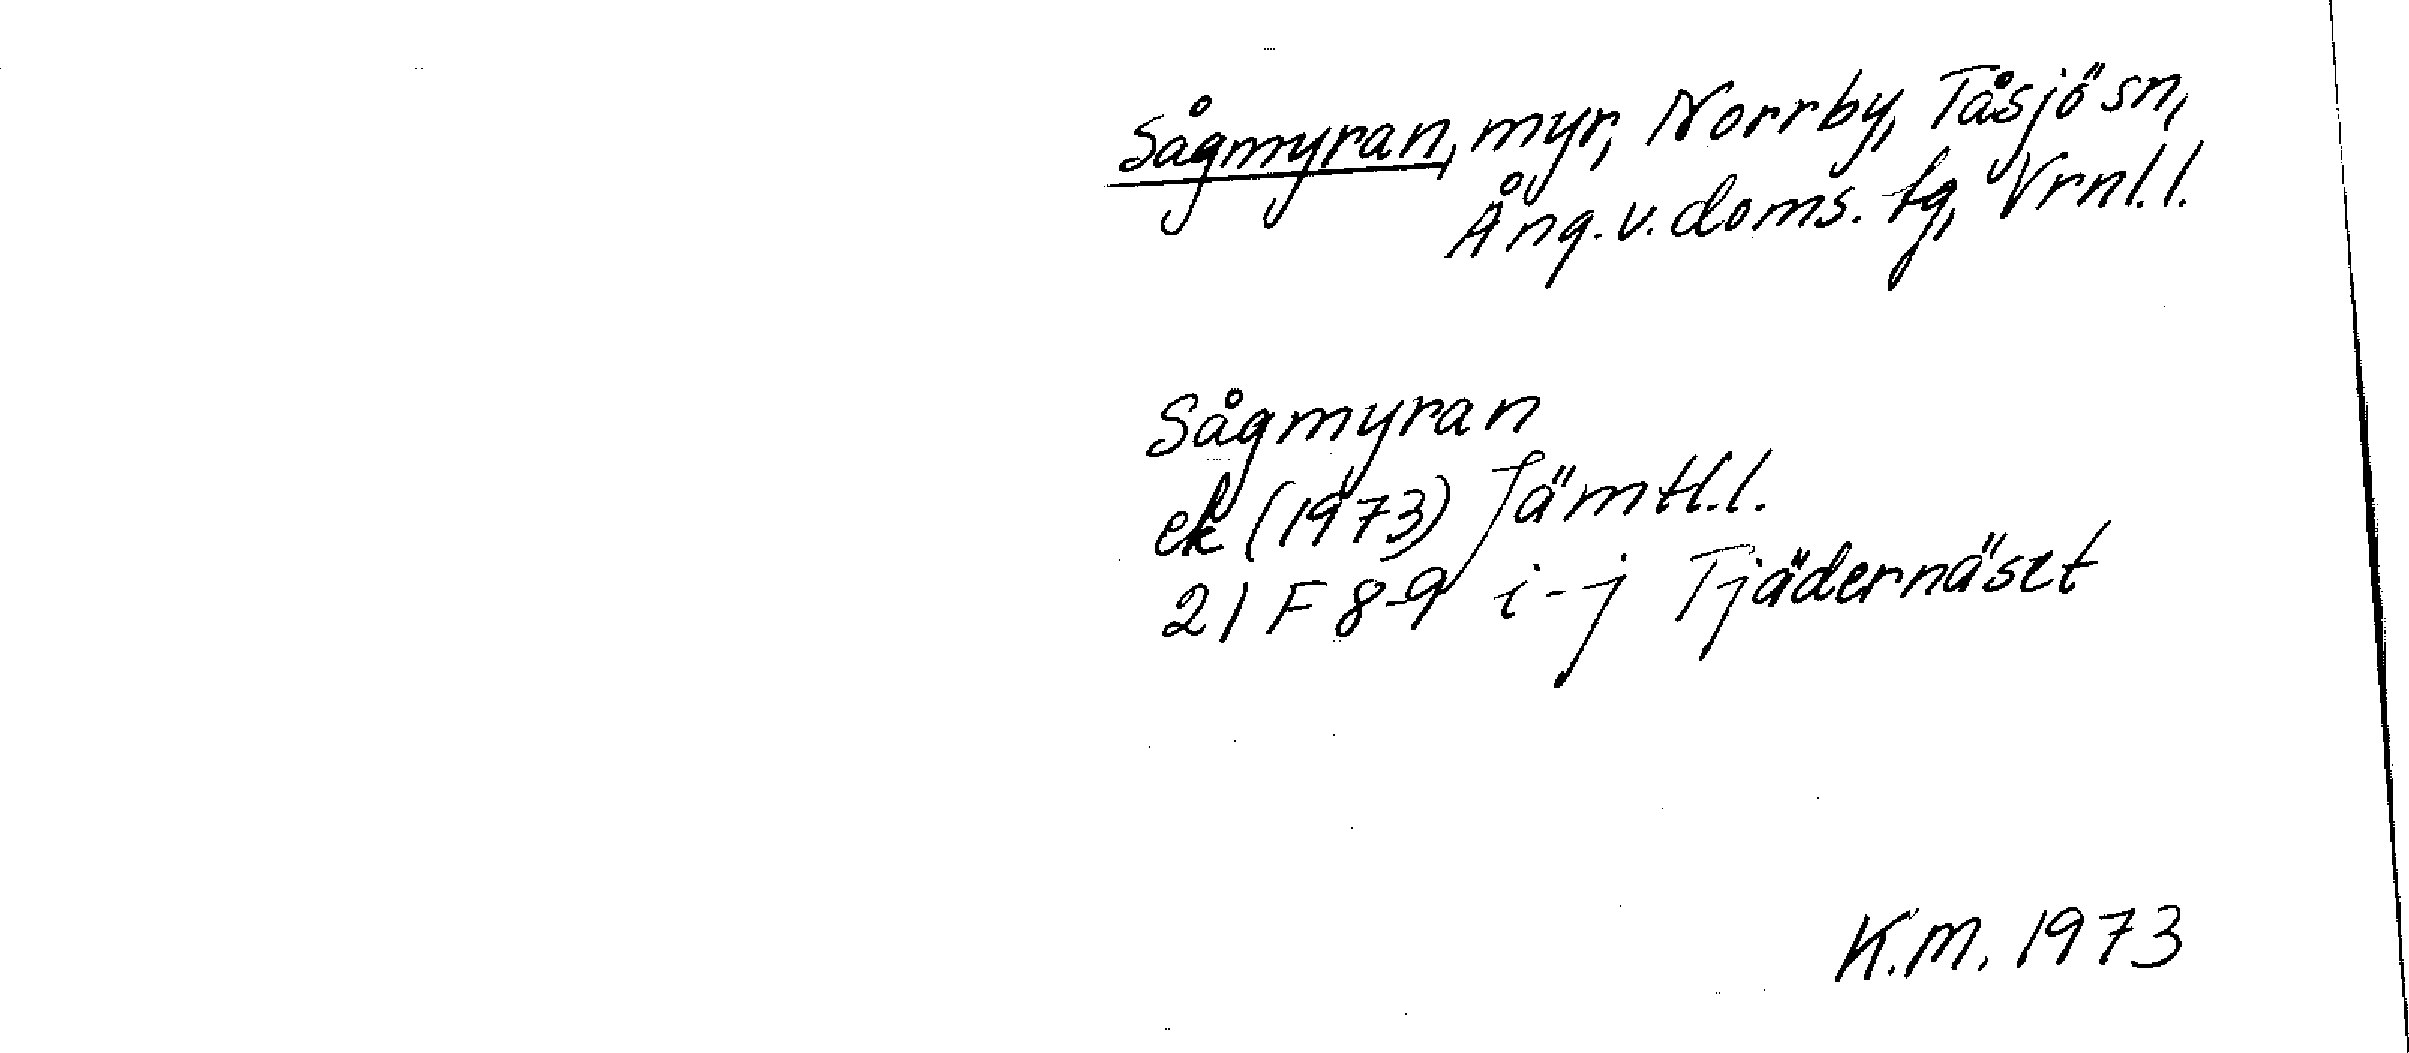 Sågmyran, myr, Norrby, Tåsjö sn,
Ång.v.doms.fg, Vrnl.l.
Sågmyran
ek (1973) Jämtl.l.
21 F 8-9 i-j Tjädernäset
K.M. 1973